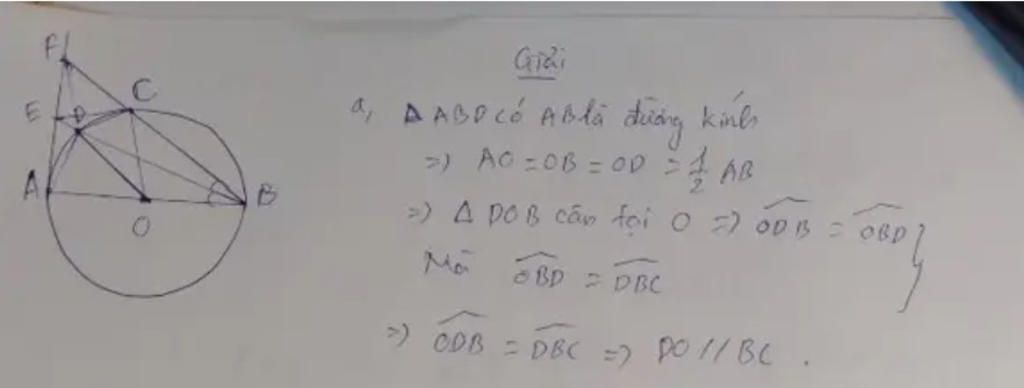 Giải
a, Δ ABD có AB là đường kính
=) AO = OB = OD = 1/2 AB
=) Δ DOB cân tại O =) ODB = OBD }
Mà OBD = DBC
=) ODB = DBC =) DO // BC .
F
C
E D
A
B
O